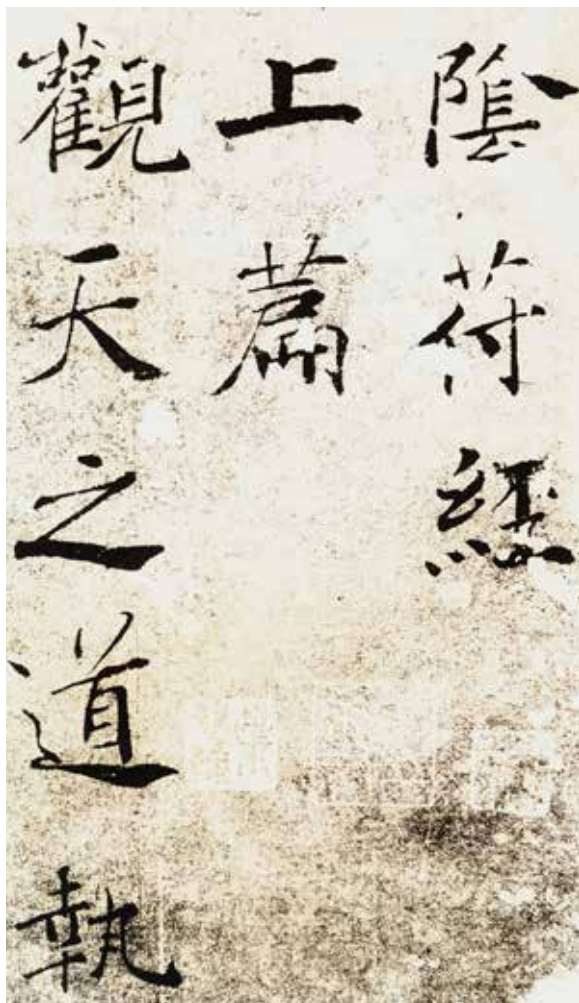 陰荷經
上萹
觀天之道執